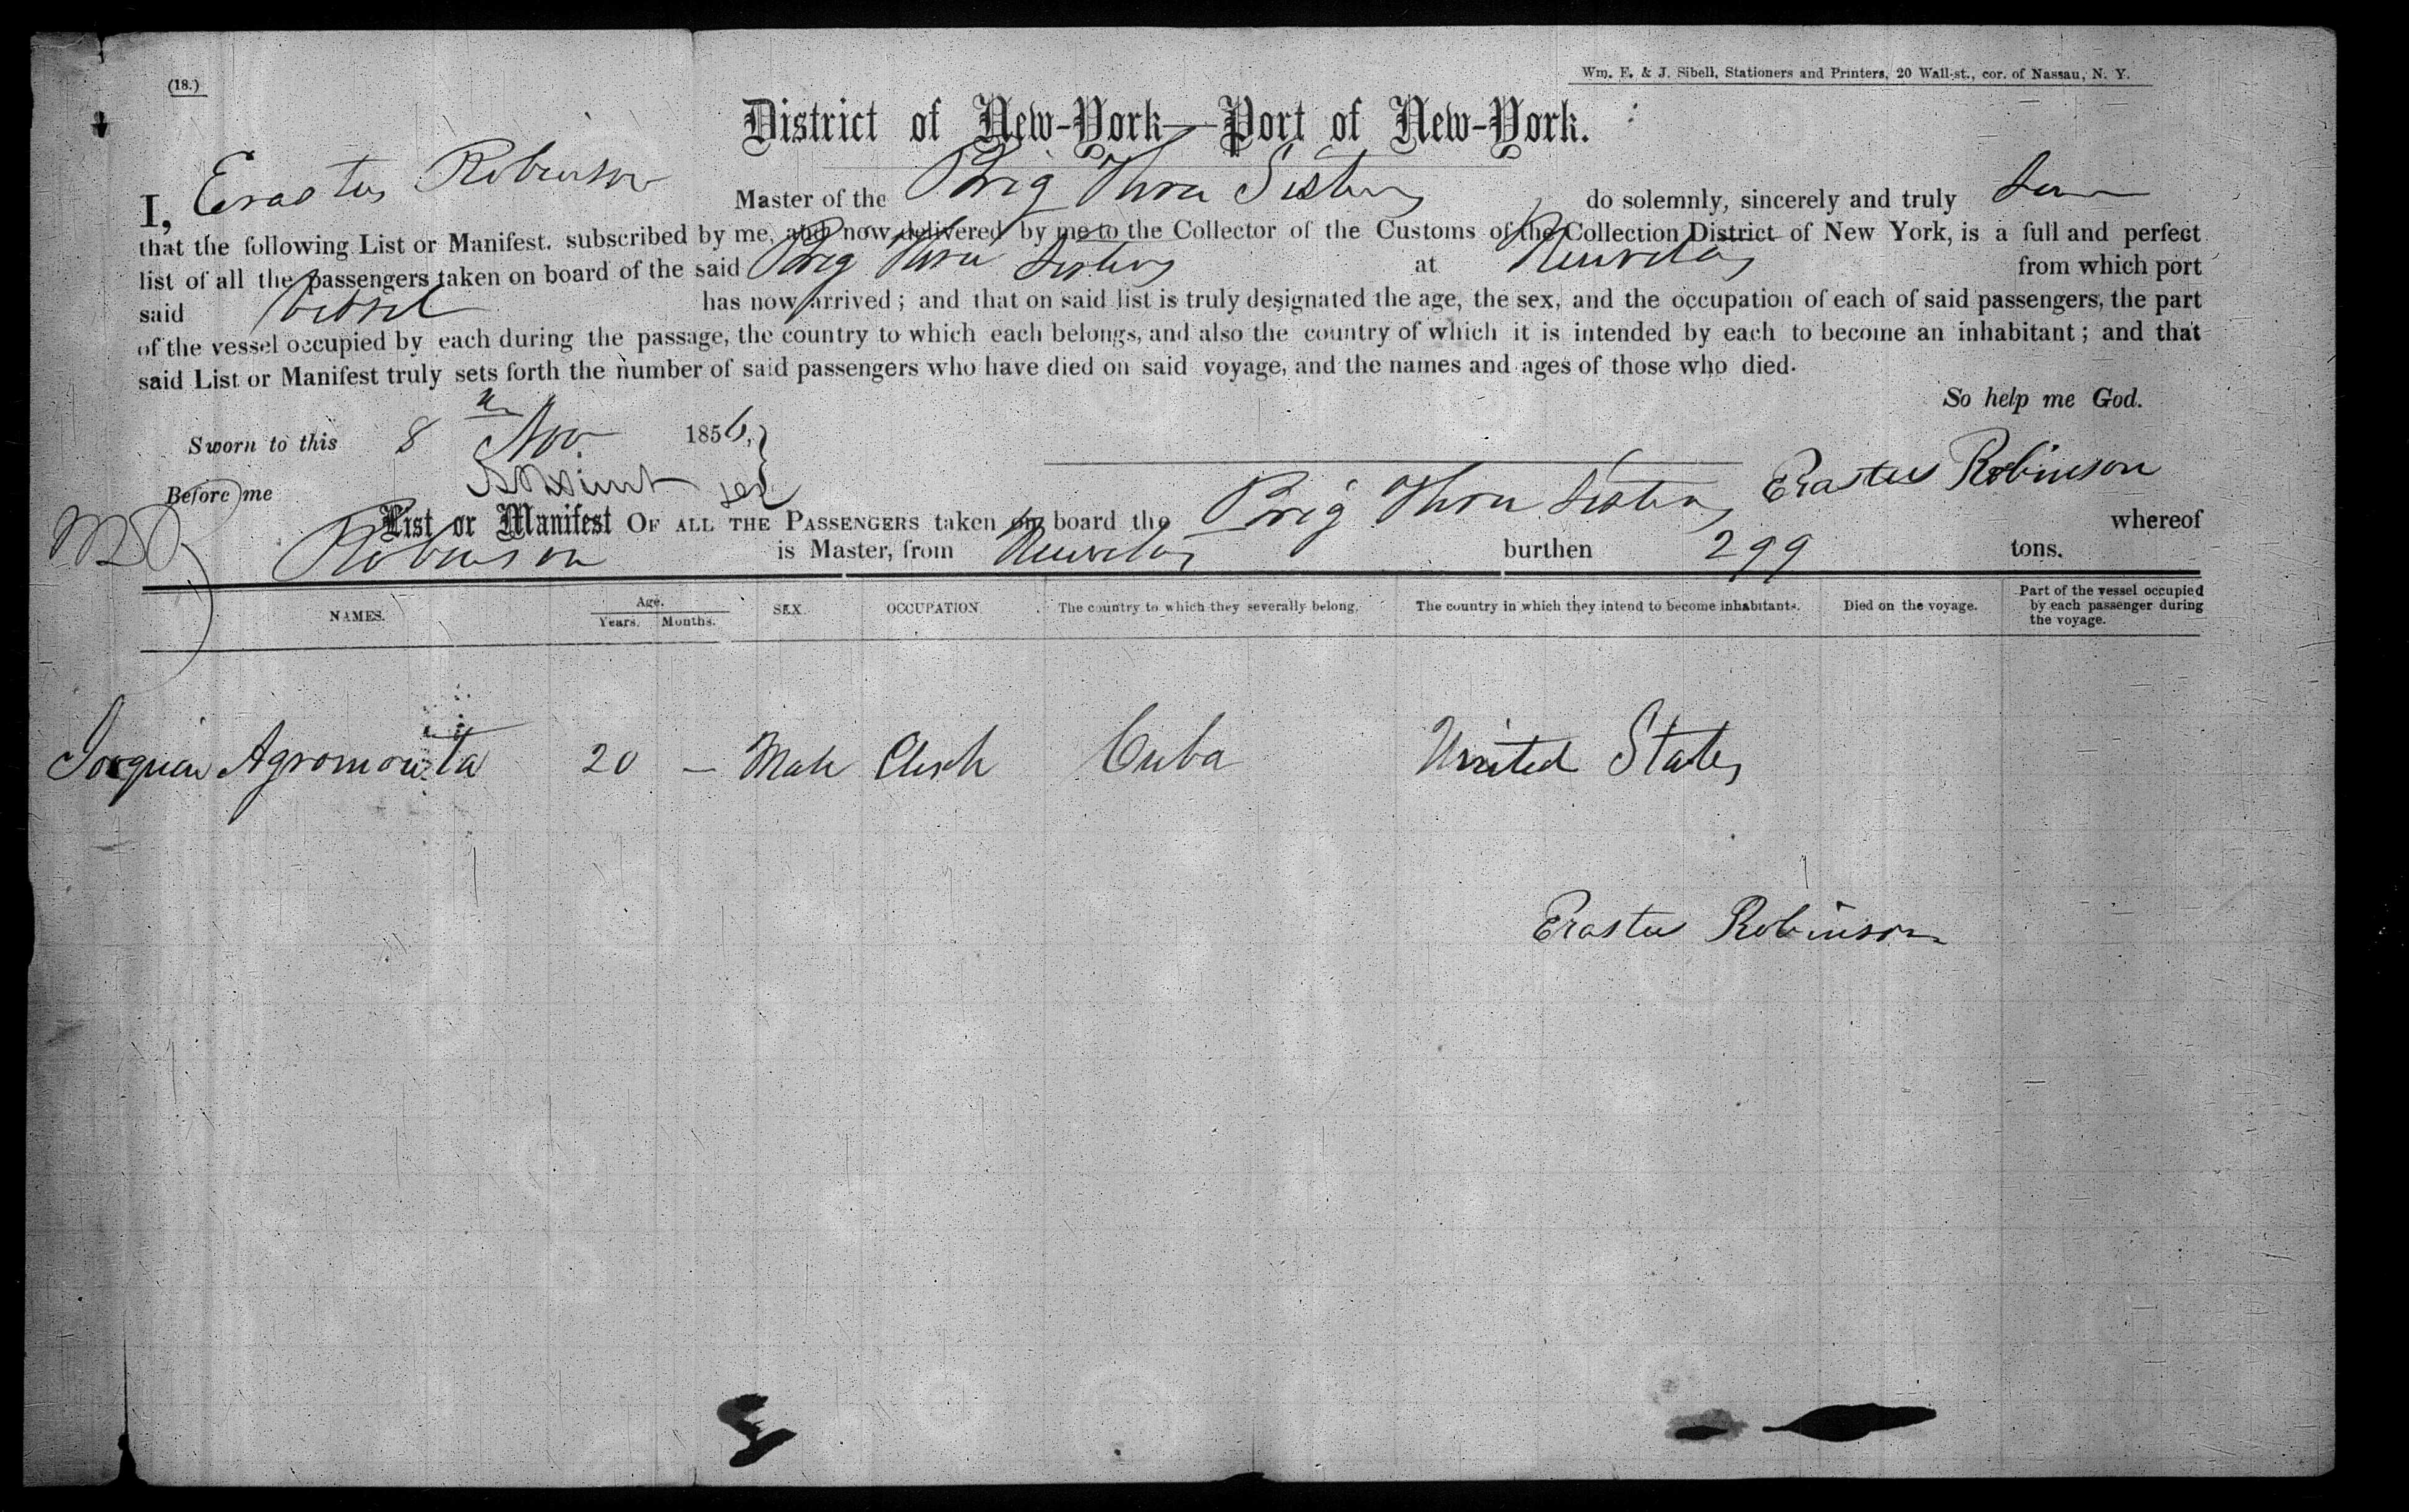 (18.)
Wm. F. & J. Sibell, Stationers and Printers, 20 Wall-st., cor. of Nassau, N. Y.
District of New-York—Port of New-York.
I, Erastus Robinson Master of the Brig Three Sisters do solemnly, sincerely and truly
that the following List or Manifest. subscribed by me, and now delivered by me to the Collector of the Customs of the Collection District of New York, is a full and perfect
list of all the passengers taken on board of the said Brig Three Sisters at Neuvitas from which port
said Vessel has now arrived; and that on said list is truly designated the age, the sex, and the occupation of each of said passengers, the part
of the vessel occupied by each during the passage, the country to which each belongs, and also the country of which it is intended by each to become an inhabitant; and that
said List or Manifest truly sets forth the number of said passengers who have died on said voyage, and the names and ages of those who died.
So help me God.
Sworn to this 8 Nov 1856,
Before me Erastus Robinson
List or Manifest OF ALL THE PASSENGERS taken on board the Brig Three Sisters whereof
Robinson is Master, from Neuvitas burthen 299 tons.
NAMES. Age. Years. Months. SEX. OCCUPATION. The country to which they severally belong. The country in which they intend to become inhabitants. Died on the voyage. Part of the vessel occupied by each passenger during the voyage.
Joaquin Agromonta 20 — Male Clerk Cuba United States
Erastus Robinson